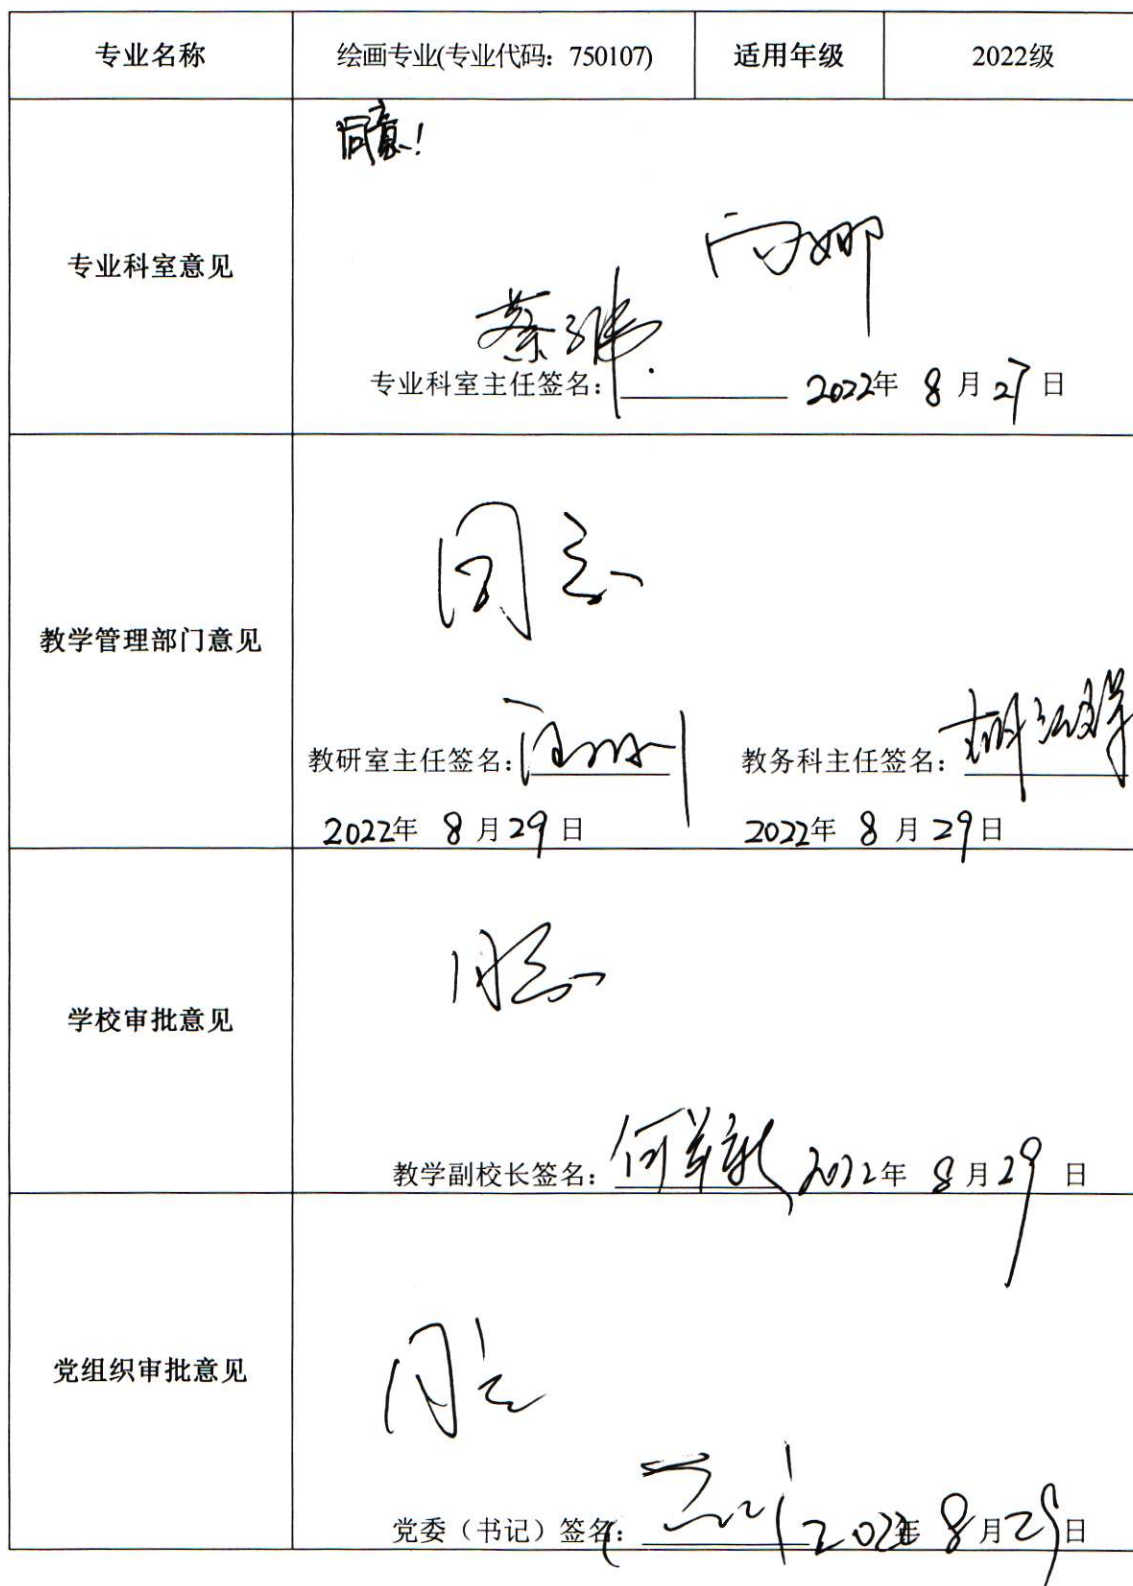 专业名称 绘画专业(专业代码：750107) 适用年级 2022级
同意！
专业科室意见
专业科室主任签名： 2022年 8月27日
同意
教学管理部门意见
教研室主任签名： 教务科主任签名：
2022年 8月29日 2022年 8月29日
同意
学校审批意见
教学副校长签名： 2022年 8月29日
同意
党组织审批意见
党委（书记）签名： 2022年 8月29日